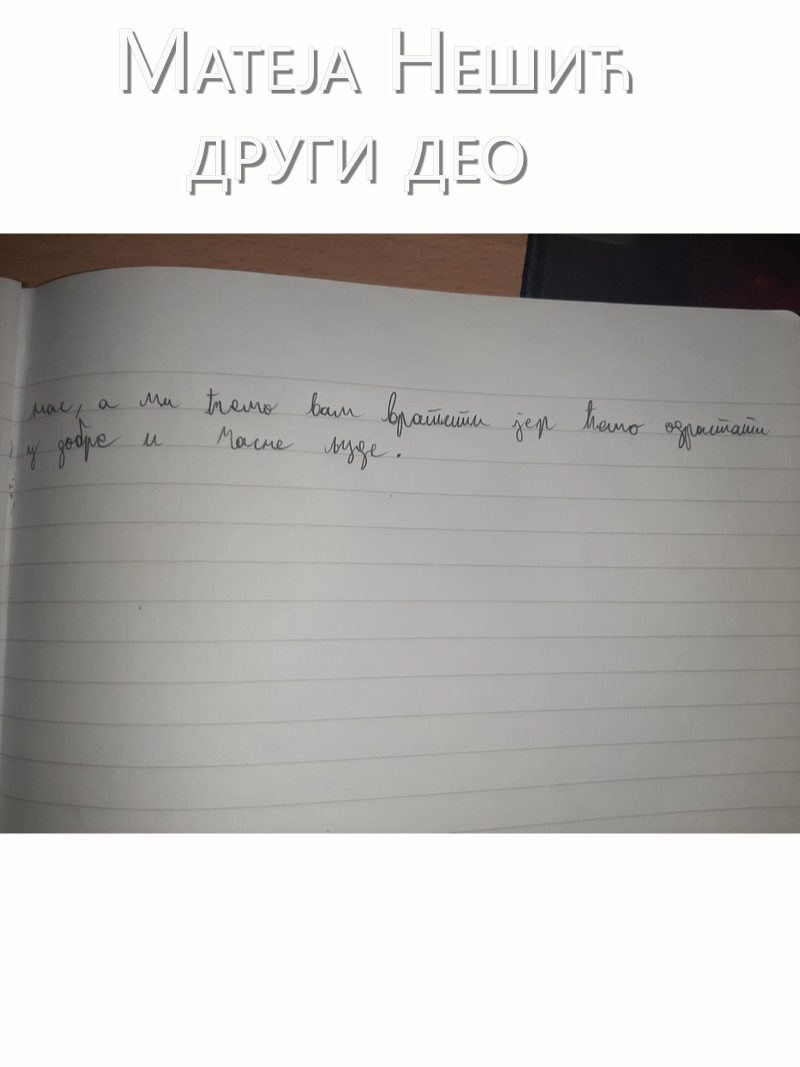 Матеја Нешић
други део
нас, а ми ћемо вам вратити јер ћемо одрастати
у добре и часне људе.